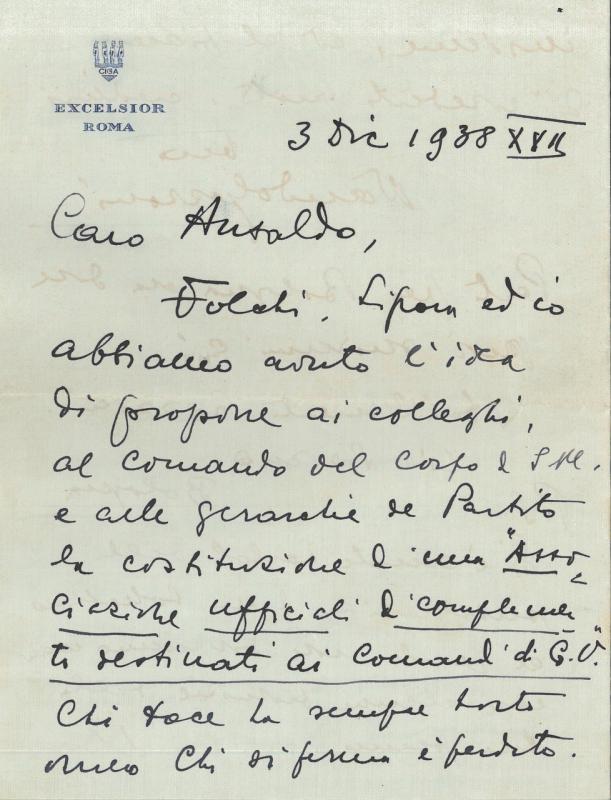 CIGA
EXCELSIOR
ROMA
3 Dic 1938 XVII
Caro Ansaldo,
Folchi, Lipara ed io
abbiamo avuto l'idea
di proporre ai colleghi,
al Comando del Corpo d S.M.
e alle gerarchie de Partito
la costituzione d'una "Asso-
ciazione ufficiali d complemen
ti destinati ai Comandi di G.U."
Chi tace ha sempre torto
Chi si ferma è perduto.